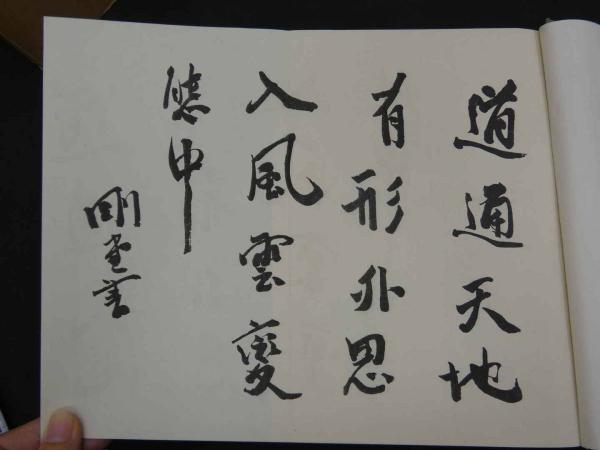 道通天地
有形外思
入風雲變
態中
剛堂書